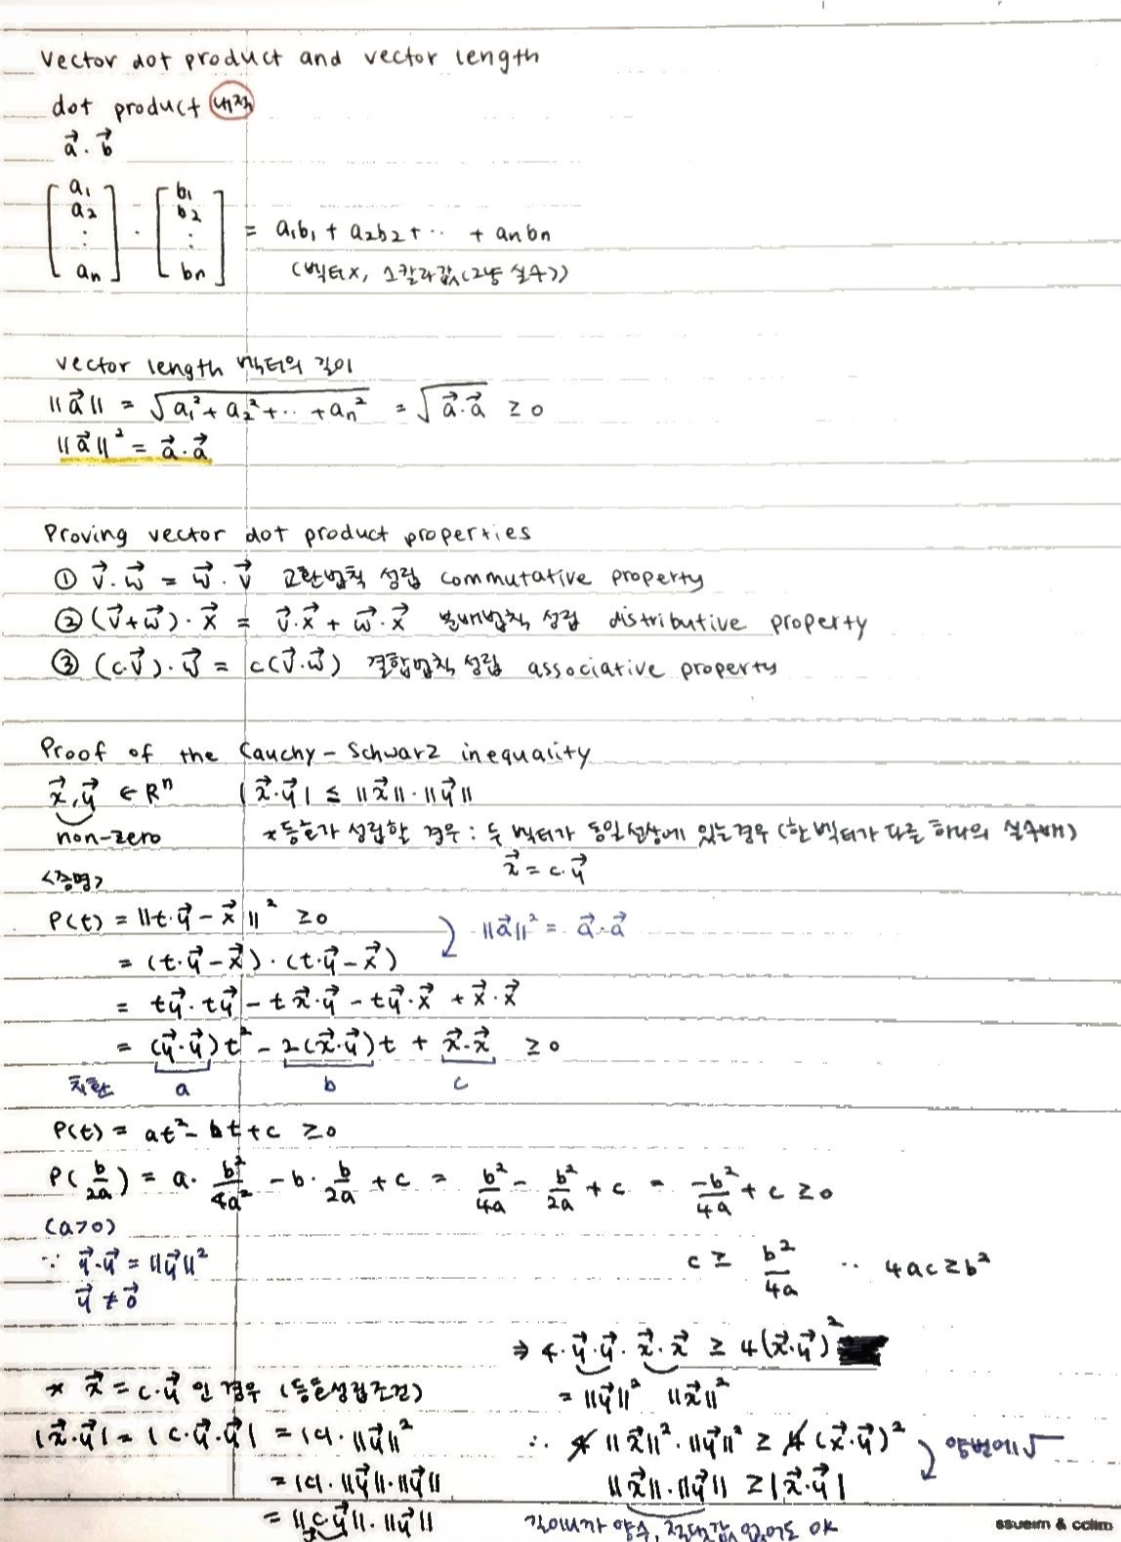 vector dot product and vector length
dot product 내적
a⃗ · b⃗
[a₁ a₂ ⋮ aₙ] · [b₁ b₂ ⋮ bₙ] = a₁b₁ + a₂b₂ + ·· + aₙbₙ
(벡터x, 스칼라값(그냥 실수))
vector length 벡터의 길이
||a⃗|| = √(a₁² + a₂² + ·· + aₙ²) = √(a⃗·a⃗) ≥ 0
||a⃗||² = a⃗·a⃗
Proving vector dot product properties
① v⃗·w⃗ = w⃗·v⃗ 교환법칙 성립 commutative property
② (v⃗+w⃗)·x⃗ = v⃗·x⃗ + w⃗·x⃗ 분배법칙 성립 distributive property
③ (c·v⃗)·w⃗ = c(v⃗·w⃗) 결합법칙 성립 associative property
Proof of the Cauchy-Schwarz inequality
x⃗, y⃗ ∈ Rⁿ |x⃗·y⃗| ≤ ||x⃗||·||y⃗||
non-zero *등호가 성립할 경우 : 두 벡터가 동일선상에 있는 경우 (한 벡터가 다른 하나의 실수배)
x⃗ = c·y⃗
<증명>
P(t) = ||t·y⃗ - x⃗||² ≥ 0 ||a⃗||² = a⃗·a⃗
= (t·y⃗ - x⃗)·(t·y⃗ - x⃗)
= ty⃗·ty⃗ - tx⃗·y⃗ - ty⃗·x⃗ + x⃗·x⃗
= (y⃗·y⃗)t² - 2(x⃗·y⃗)t + x⃗·x⃗ ≥ 0
치환 a b c
P(t) = at² - bt + c ≥ 0
P(b/2a) = a · b²/4a² - b · b/2a + c = b²/4a - b²/2a + c = -b²/4a + c ≥ 0
(a>0)
∵ y⃗·y⃗ = ||y⃗||²
y⃗ ≠ 0⃗
c ≥ b²/4a ·· 4ac ≥ b²
⇒ 4·y⃗·y⃗·x⃗·x⃗ ≥ 4(x⃗·y⃗)²
= ||y⃗||² ||x⃗||²
∴ 4||x⃗||²·||y⃗||² ≥ 4(x⃗·y⃗)² 양변에 √
||x⃗||·||y⃗|| ≥ |x⃗·y⃗|
각 양수, 절댓값 없어도 OK
* x⃗ = c·y⃗ 인 경우 (등호성립조건)
|x⃗·y⃗| = |c·y⃗·y⃗| = |c|·||y⃗||²
= |c|·||y⃗||·||y⃗||
= ||c y⃗||·||y⃗||
x⃗
ssueim & cclim